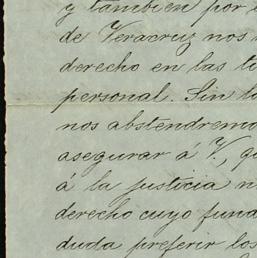 y también por
de Veracruz nos
derecho en las
personal. Sin
nos abstendremo
asegurar á V., q
á la justicia n
derecho cuyo fund
duda preferir los